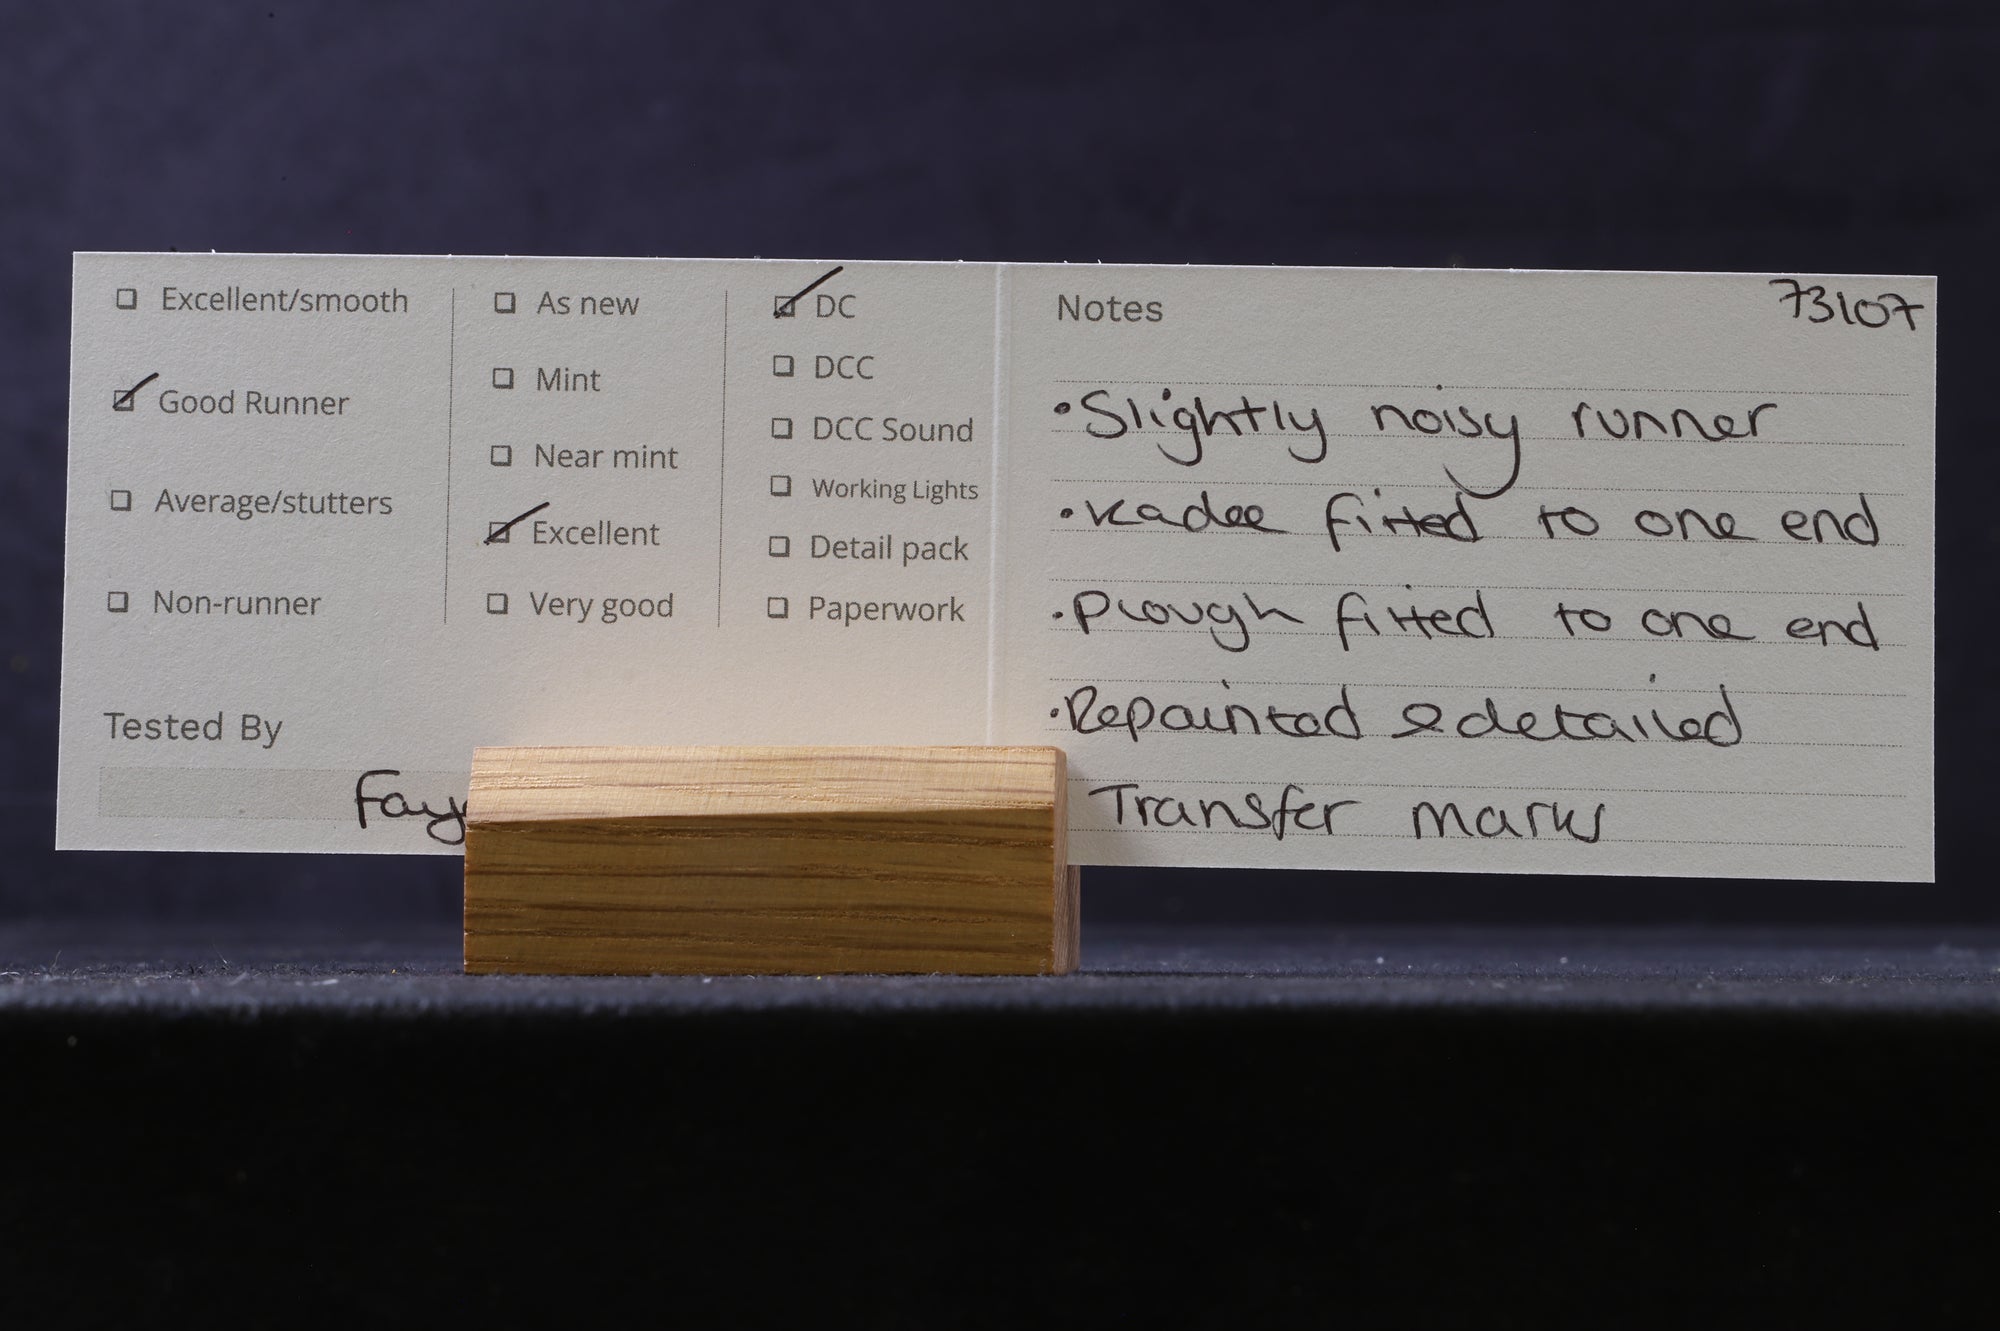 Excellent/smooth
Good Runner
Average/stutters
Non-runner
As new
Mint
Near mint
Excellent
Very good
DC
DCC
DCC Sound
Working Lights
Detail pack
Paperwork
Tested By
Faye
Notes
73107
•Slightly noisy runner
•Kadee fitted to one end
•Plough fitted to one end
•Repainted & detailed
Transfer marks